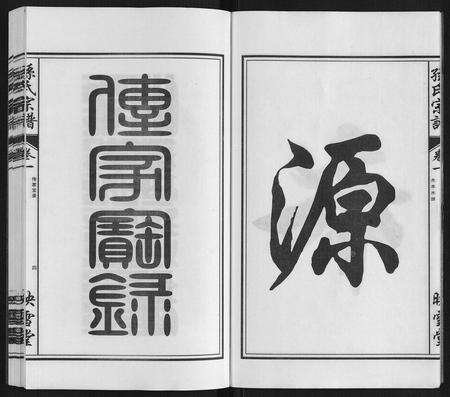 源
孫氏宗譜
卷一
映雪堂
傳家寶錄
孫氏宗譜
卷一
傳家寶錄
四
映雪堂